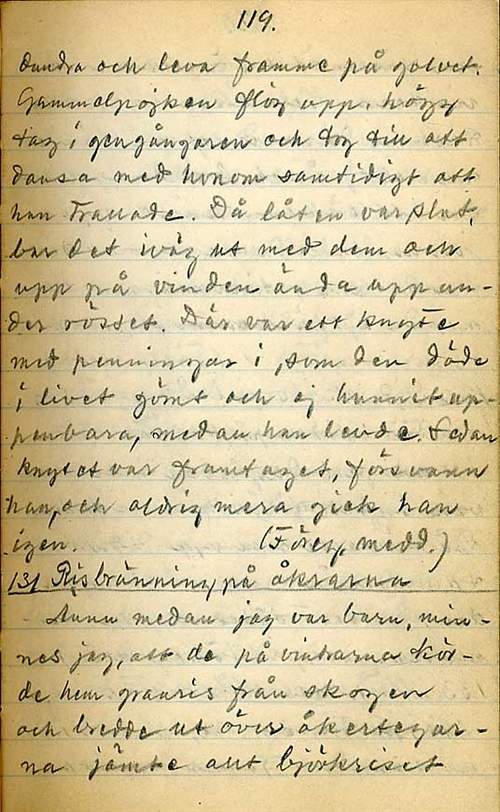 119.
dundra och leva framme på golvet.
Gammelpojken flög upp, högg
tag i gengångaren och tog till att
dansa med honom samtidigt att
han trallade. Då låten var slut,
bar det iväg ut med dem och
upp på vinden ända upp un-
der röstet. Där var ett knyte
med penningar i, som den döde
i livet gömt och ej hunnit up-
penbara, medan han levde. Sedan
knytet var framtaget, försvann
han, och aldrig mera gick han
igen. (Föreg. medd.)
131 Risbränning på åkrarna
Ännu medan jag var barn, min-
nes jag, att de på vintrarna kör-
de hem granris från skogen
och bredde ut över åkertegar-
na jämte allt björkriset